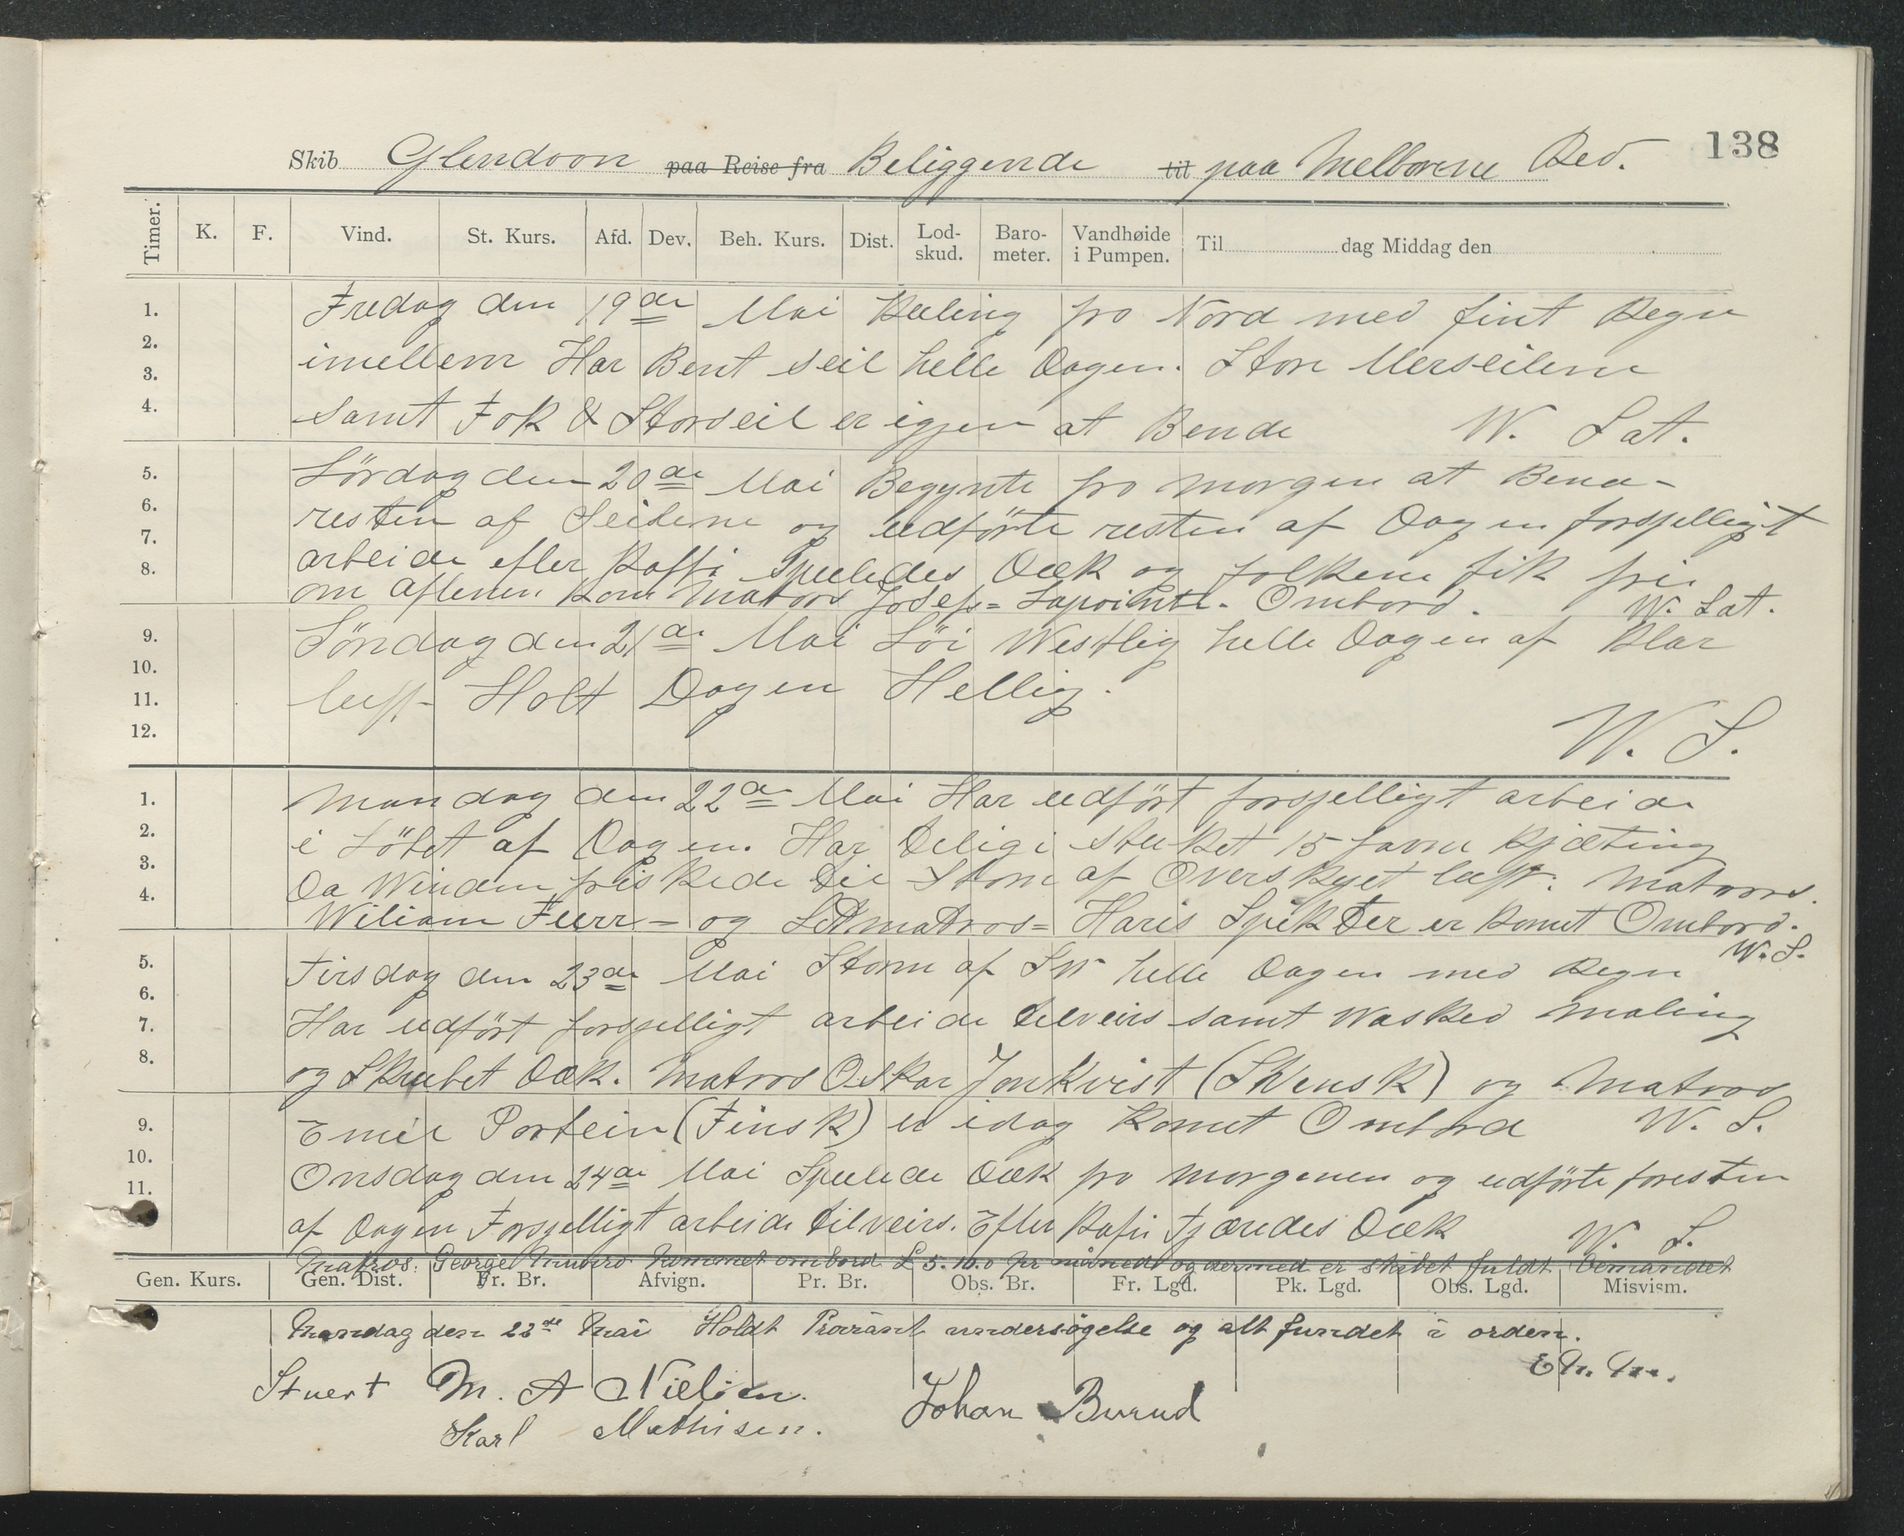 138
Skib Glendoon paa Reise fra Beliggende til paa Melborne Red.
Timer. K. F. Vind. St. Kurs. Afd. Dev. Beh. Kurs. Dist. Lod-skud. Baro-meter. Vandhøide i Pumpen. Til dag Middag den
1. Fredag den 19de Mai Kuling fra Nord med fint Regn
2. 3. imellem Har Bent seil helle Dagen. Store Merseilene
4. samt Fok & Storseil er igjen at Bende W. Sat.
5. Lördag den 20de Mai Begynte fra morgen at Bende
6. resten af Seilene og udförte resten af Dagen forsjelligt
7. 8. arbeide efter Kaffi Spuledes Dæk og folkene fik fri
om aftenen kom Matros Josef = Lapointe. Ombord. W. Sat.
9. Söndag den 21de Mai Löi Westlig helle Dagen af klar
10. 11. luft Holt Dagen Hellig.
12. W. S.
1. Mandag den 22de Mai Har udfört forsjelligt arbeide
2. i Löbet af Dagen. Har Delig i stuket 15 favne Kjæting
3. Da Winden friskede til Storm af Overskyet luft. Matros
4. Wiliam Furr = og Letmatros = Haris Spikter er komet Ombord.
W. S.
5. Tirsdag den 23de Mai Storm af SW helle Dagen med Regn
6. 7. Har udfört forsjelligt arbeide tilveirs samt Wasked Maling
8. og Skrubet Dæk. Matros Oskar Jonkvist (Svensk) og Matros
9. Emil Portein (Finsk) er idag komet Ombord W. S.
10. 11. Onsdag den 24de Mai Spulede Dæk fra morgenen og udförte foresten
af Dagen Forsjelligt arbeide tilveirs. Efter Kafii Tjæredes Dæk W. S.
Matros. George Munro kommet ombord £ 5.10.0 pr måned og dermed er skibet fuldt bemandet
Gen. Kurs. Gen. Dist. Fr. Br. Afvign. Pr. Br. Obs. Br. Fr. Lgd. Pk. Lgd. Obs. Lgd. Misvism.
Mandag den 22de Mai Holdt Proviant undersøgelse og alt fundet i orden.
Stuert M. A Nielsen. Johan Burud
Karl Mathisen.